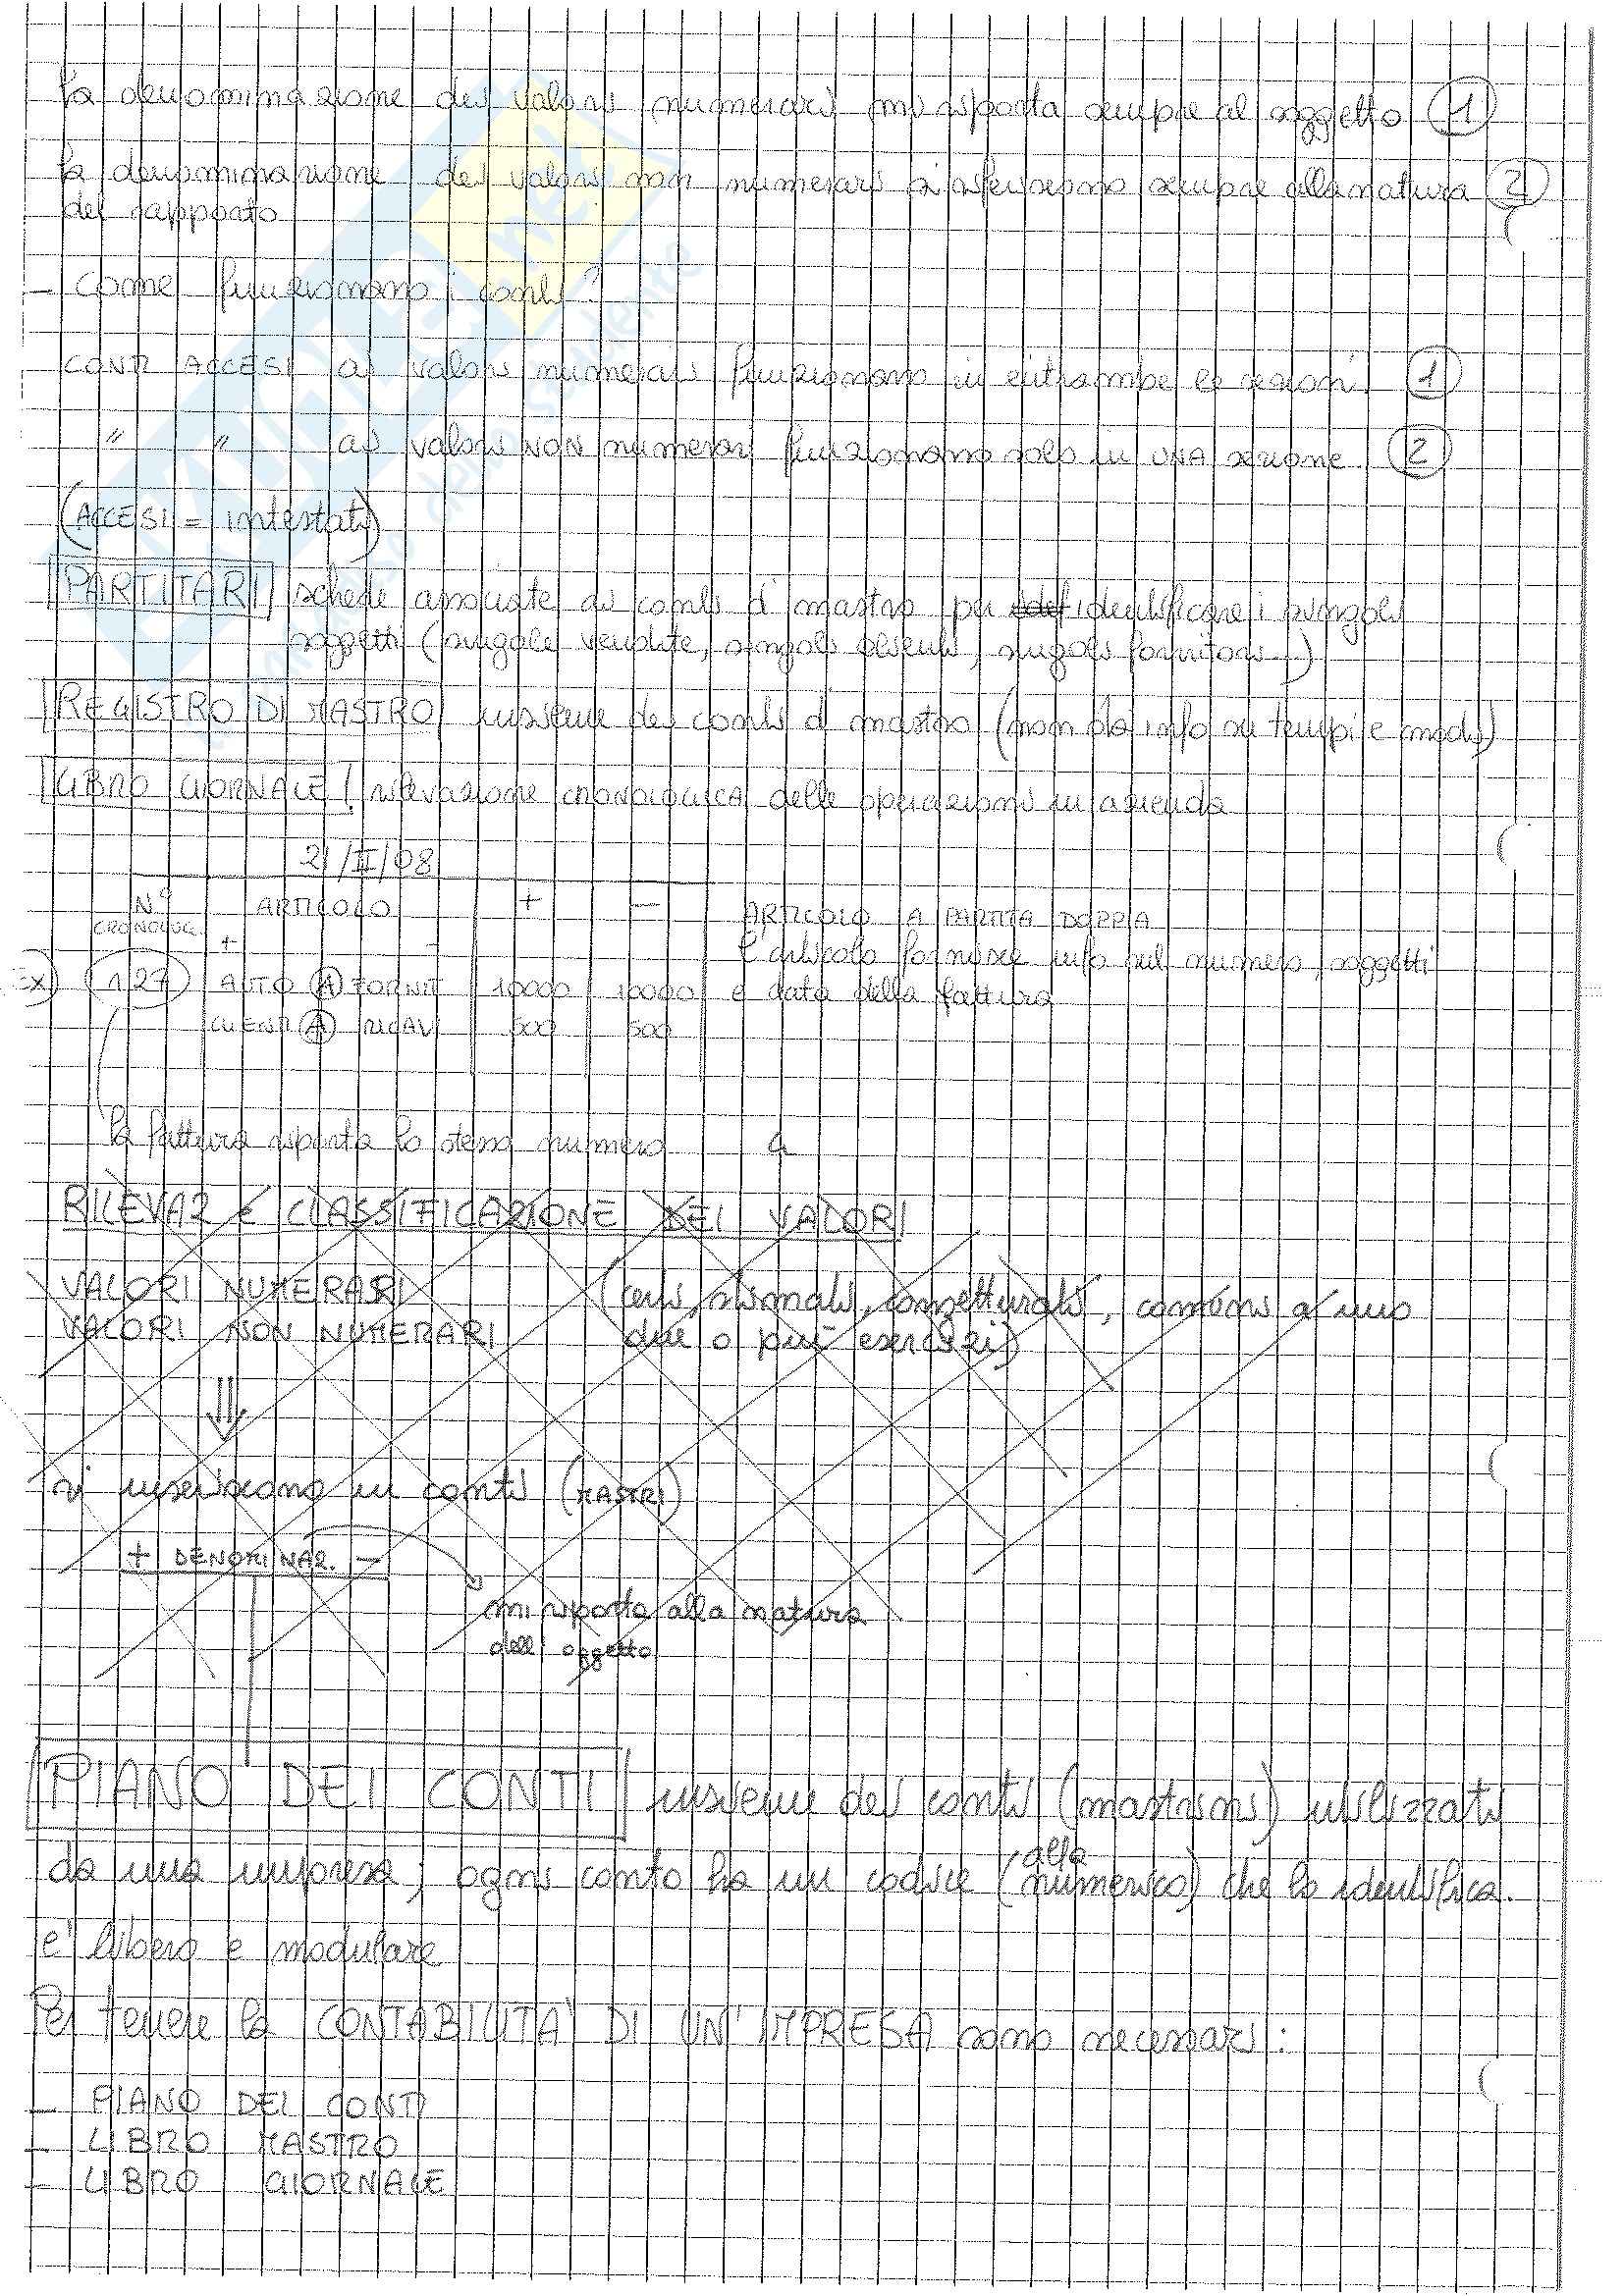 la denominazione dei valori numerari mi riporta sempre al soggetto 1
la denominazione dei valori non numerari si riferiscono sempre alla natura 2
del rapporto
- come funzionano i conti?
CONTI ACCESI ai valori numerari funzionano in entrambe le sezioni 1
" " ai valori NON numerari funzionano solo in UNA sezione 2
(ACCESI = intestati)
PARTITARI schede associate ai conti di mastro per identificare i singoli
soggetti (singole vendite, singoli clienti, singoli fornitori...)
REGISTRO DI MASTRO insieme dei conti di mastro (non dà info su tempi e modi)
LIBRO GIORNALE rilevazione CRONOLOGICA delle operazioni in azienda
21/II/08
N° ARTICOLO + - ARTICOLO A PARTITA DOPPIA
CRONOLOG. + - l'articolo fornisce info sul numero, soggetti
EX) 127 AUTO A FORNIT 10000 10000 e data della fattura
CLIENTI A RICAVI 500 500
la fattura riporta lo stesso numero
RILEVAZ e CLASSIFICAZIONE DEI VALORI
VALORI NUMERARI (certi, stimati, congetturati, comuni a uno
VALORI NON NUMERARI due o più esercizi)
si inseriscono in conti (MASTRI)
+ DENOMINAZ. -
mi riporta alla natura
dell'oggetto
PIANO DEI CONTI insieme dei conti (mastrini) utilizzati
alfa
da una impresa; ogni conto ha un codice (numerico) che lo identifica.
e' libero e modulare
Per tenere la CONTABILITA' DI UN'IMPRESA sono necessari:
- PIANO DEI CONTI
- LIBRO MASTRO
- LIBRO GIORNALE